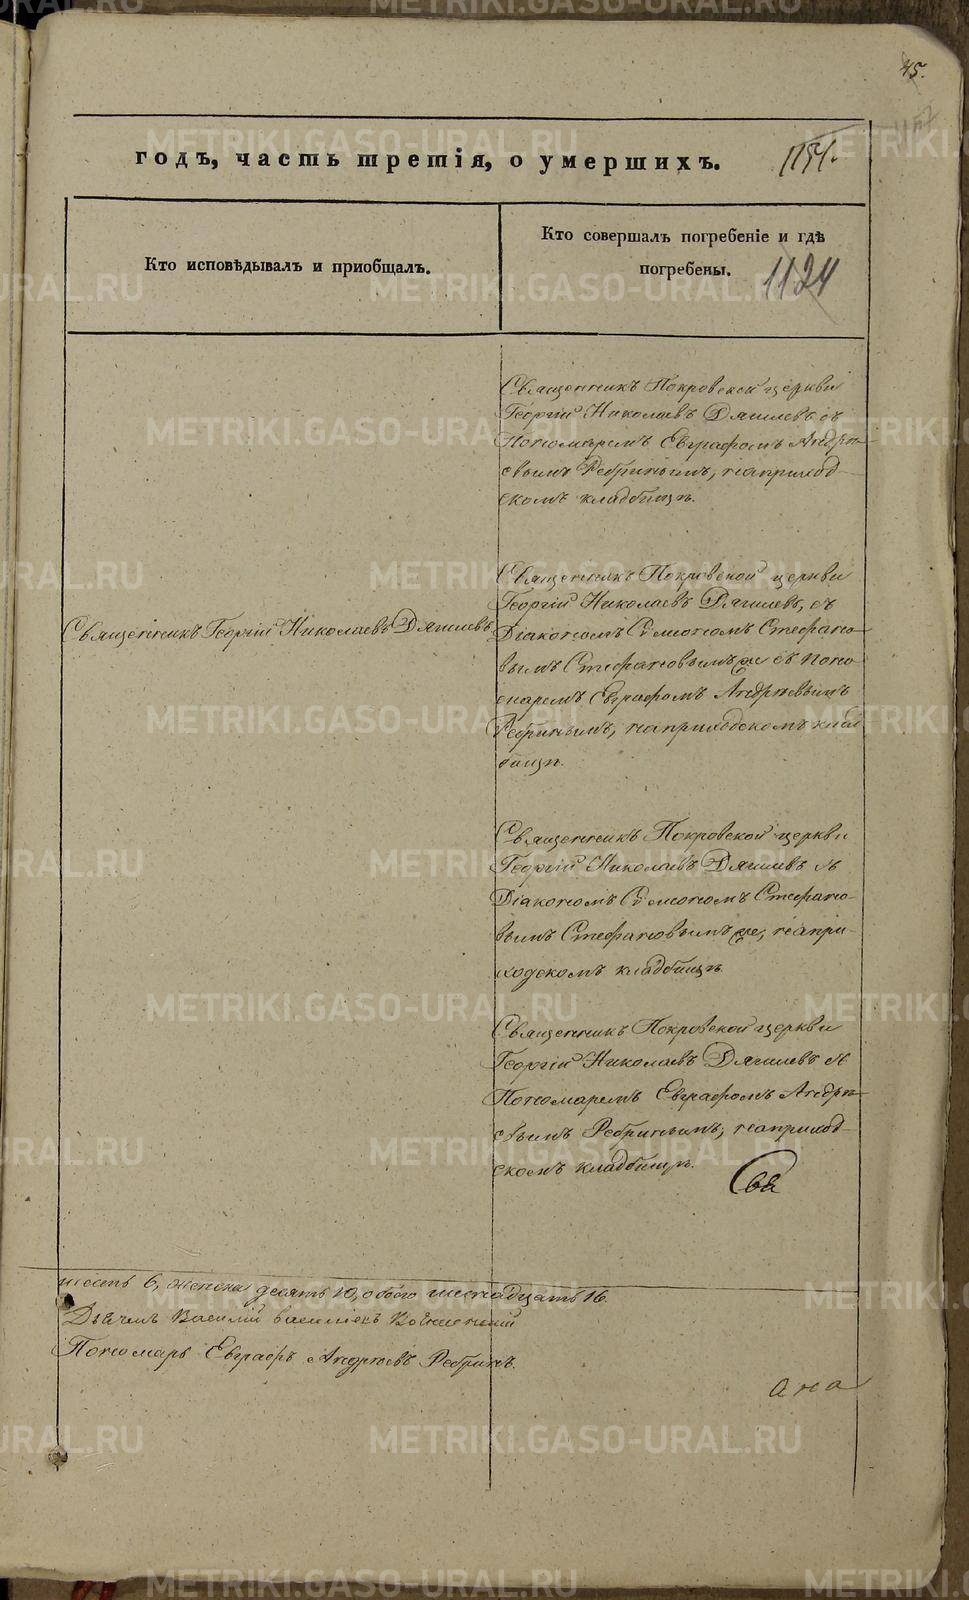 45.
годъ, часть третія, о умершихъ.
1151.
Кто исповѣдывалъ и пріобщалъ.
Кто совершалъ погребеніе и гдѣ
погребены.
1124
Священникъ Покровской церкви
Георгій Николаевъ Дягилевъ съ
Пономаремъ Евграфомъ Андрѣ-
евымъ Ребринымъ, наприход-
скомъ кладбищѣ.
Священникъ Покровской церкви
Георгій Николаевъ Дягилевъ, съ
Священникъ Георгій Николаевъ Дягилевъ
Діакономъ Симеономъ Стефано-
вымъ Стефановымъ же съ поно
маремъ Евграфомъ Андрѣевымъ
Ребринымъ, наприходскомъ клад
бищѣ.
Священникъ Покровской церкви
Георгій Николаевъ Дягилевъ съ
Діакономъ Симеономъ Стефано-
вымъ Стефановымъ же, напри-
ходскомъ кладбищѣ
Священникъ Покровской церкви
Георгій Николаевъ Дягилевъ съ
Пономаремъ Евграфомъ Андрѣ-
евымъ Ребринымъ, наприход-
скомъ кладбищѣ.
Свя
шесть 6, женска десять 10, обоего шестнадцать 16.
Дьячекъ Василій
Пономарь Евграфъ Андреевъ Ребринъ.
METRIKI.GASO-URAL.RU